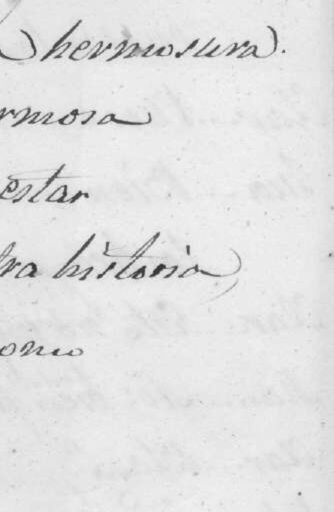 hermosura.
rmosa
estar
tra historia
omo